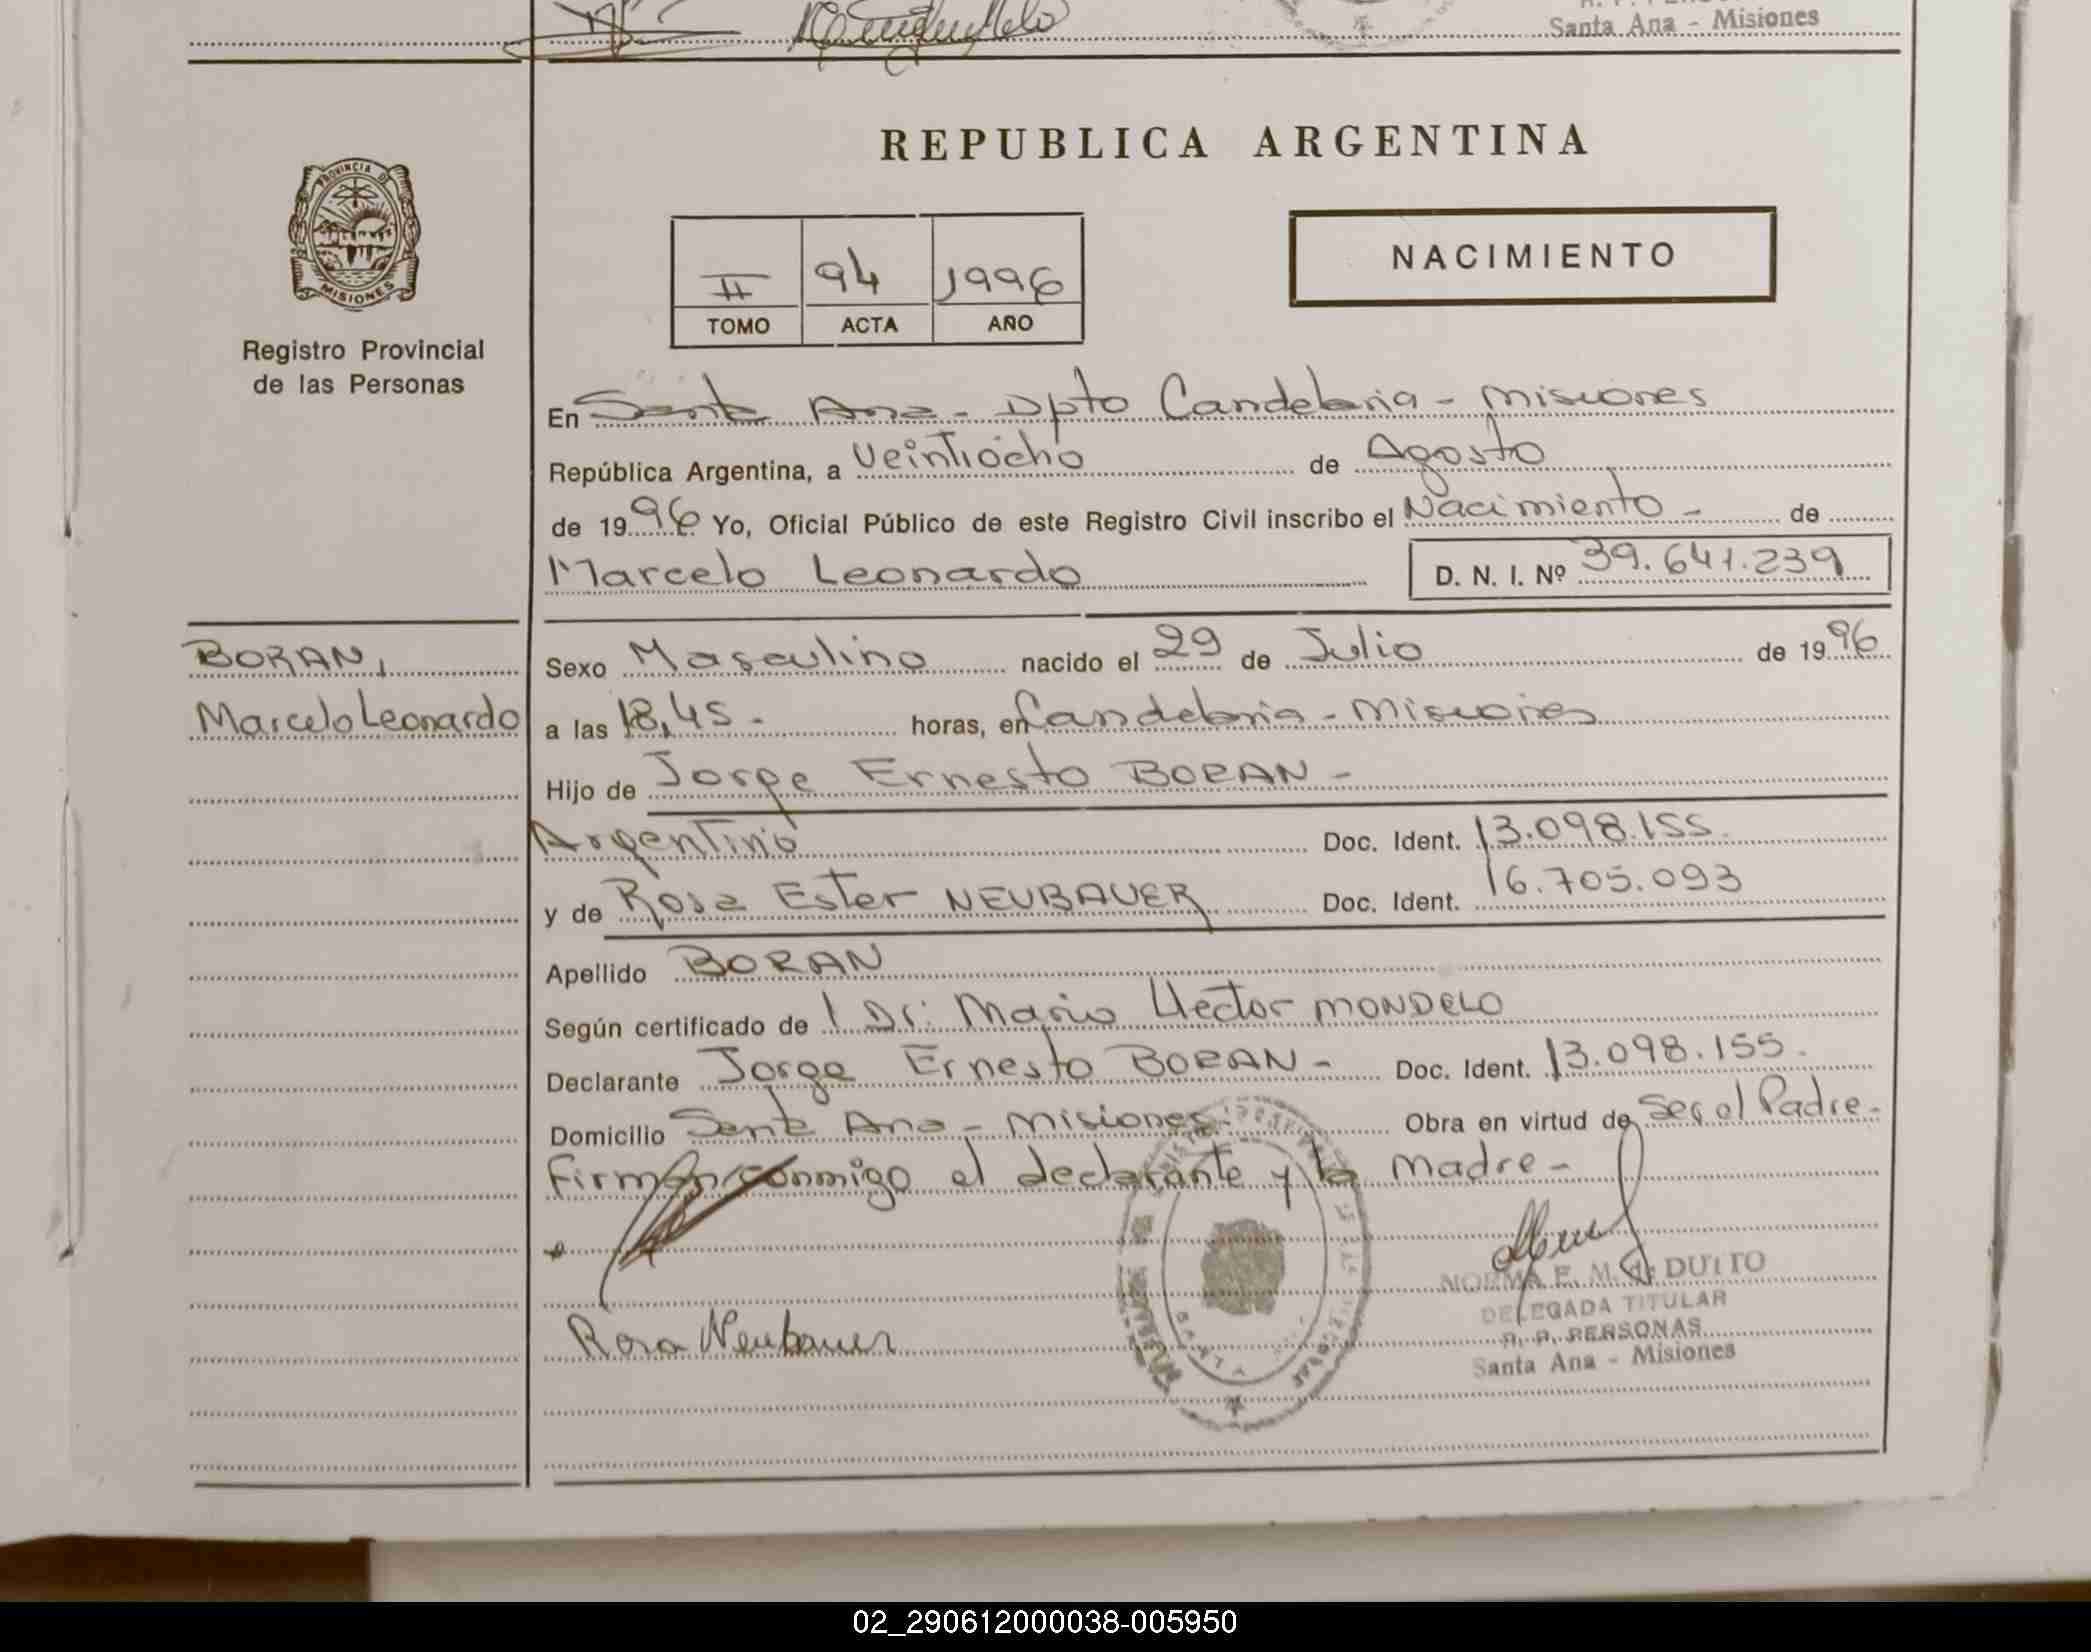 Santa Ana - Misiones
REPUBLICA ARGENTINA
PROVINCIA DE
MISIONES
Registro Provincial
de las Personas
NACIMIENTO
II 94 1996
TOMO ACTA AÑO
En Santa Ana - Dpto Candelaria - Misiones
República Argentina, a Veintiocho de Agosto
de 1996 Yo, Oficial Público de este Registro Civil inscribo el Nacimiento - de
Marcelo Leonardo D. N. I. Nº 39.641.239
BORAN,
Marcelo Leonardo
Sexo Masculino nacido el 29 de Julio de 1996
a las 18,45. horas, en Candelaria - Misiones
Hijo de Jorge Ernesto BORAN -
Argentino Doc. Ident. 13.098.155.
y de Rosa Ester NEUBAUER Doc. Ident. 16.705.093
Apellido BORAN
Según certificado de Dr. Mario Hector MONDELO
Declarante Jorge Ernesto BORAN - Doc. Ident. 13.098.155.
Domicilio Santa Ana - Misiones. Obra en virtud de Ser el Padre.
Firman conmigo el declarante y la madre -
Rosa Neubauer
NORMA E. M. de DUTTO
DELEGADA TITULAR
R. P. PERSONAS
Santa Ana - Misiones
02_290612000038-005950